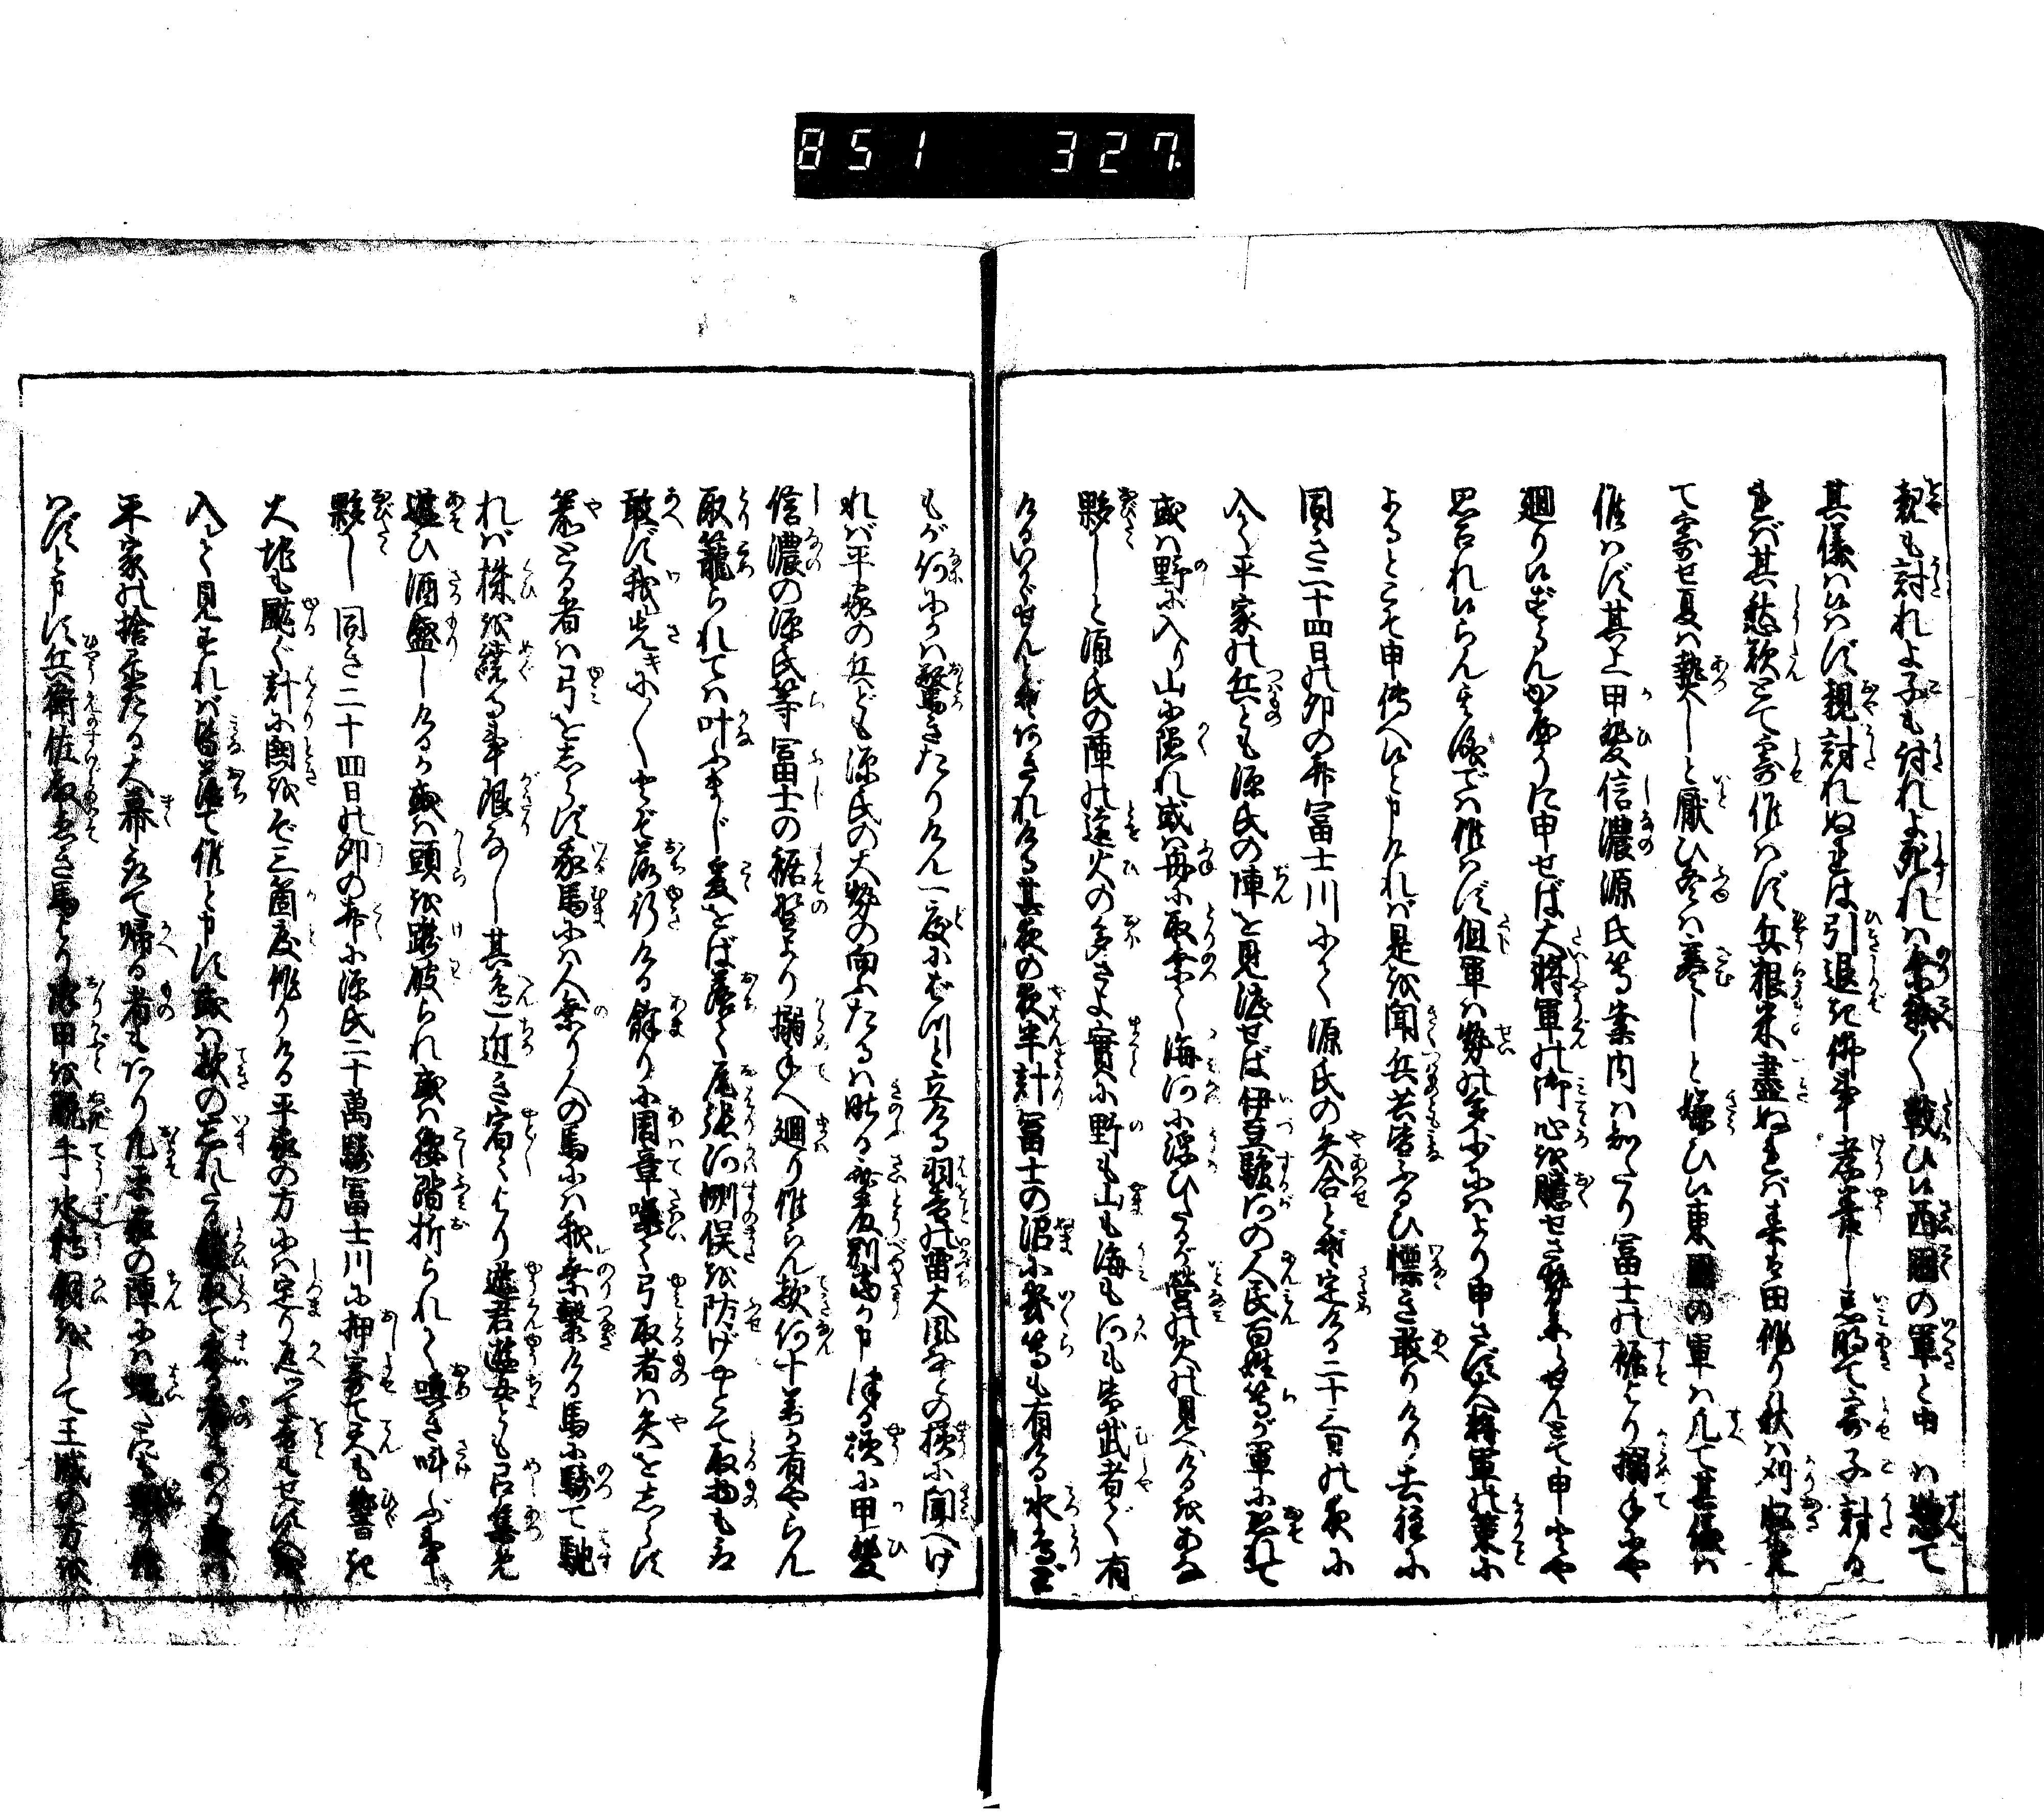 851 327.
親も討れよ子も討れよ死れは乗越〳〵戦ひ候西國の軍と申は惣て
其儀は候はず親討れぬれは引退き佛事孝養し忌明て寄子討
れぬれば其愁歎とて寄候はず兵粮米盡ぬれば春は田作り秋は刈收
て寄せ夏は熱しと厭ひ冬は寒しと嫌ひ候東國の軍は凡て其儀は
候はず其上甲斐信濃源氏等案内は知たり冨士の裾より搦手にや
廻り候はずらんかやうに申せば大將軍の御心を臆せさせ參らせんとて申とや
思召れ候らん其儀では候はず但軍は勢の多少にはより申さず大將軍の策に
よるとこそ申傳へ候と申ければ是を聞兵共皆ふるひ慄き敢りけり去程に
同き二十四日の卯の刻冨士川にて源氏の矢合とぞ定ける二十三日の夜に
入て平家の兵とも源氏の陣を見渡せば伊豆駿河の人民百姓等が軍に恐れて
或は野に入り山に隠れ或は舟に取乗て海河に浮ひたるが營の火の見へけるを
夥しと源氏の陣の遠火の多さよ實に野も山も海も河も皆武者で有
けるいかゞせんとぞあきれける其夜の夜半計冨士の沼に幾等も有ける水鳥ど
もが何にかは驚きたりけん一度にばつと立ける羽音の雷大風などの様に聞へけ
れば平家の兵ども源氏の大勢の向ふたるは昨日齋藤別當が申つる様に甲斐
信濃の源氏等冨士の裾野より搦手へ廻り候らん敵何十萬か有やらん
取籠られては叶ふまじ爰をば落て尾張河洲俣を防げやとて取物も取
敢ず我先きに〳〵とぞ落行ける餘りに周章噪て弓取者は矢をしらず
箭とる者は弓をしらず我馬には人乗り人の馬には我乗繋ける馬に騎て馳
れば株を繞る事限なし其邊近き宿々より遊君遊女とも召集め
遊ひ酒盛しけるが或は頭を蹴破られ或は腰踏折られて喚き叫ぶ事
夥し同き二十四日の卯の刻に源氏二十萬騎冨士川に押寄て天も響き
大地も颭ぐ計に鬨をぞ三箇度作りける平家の方には定り返て音もせず人を
入て見せければ皆落て候と申す或は敵の忘れたる鎧取て參る者もあり或は
平家の捨置たる大幕取て帰る者もあり凡平家の陣には蝿だにも翔り候
はずと申す兵衛佐殿急き馬より降甲を脱手水鵜飼をして王城の方を